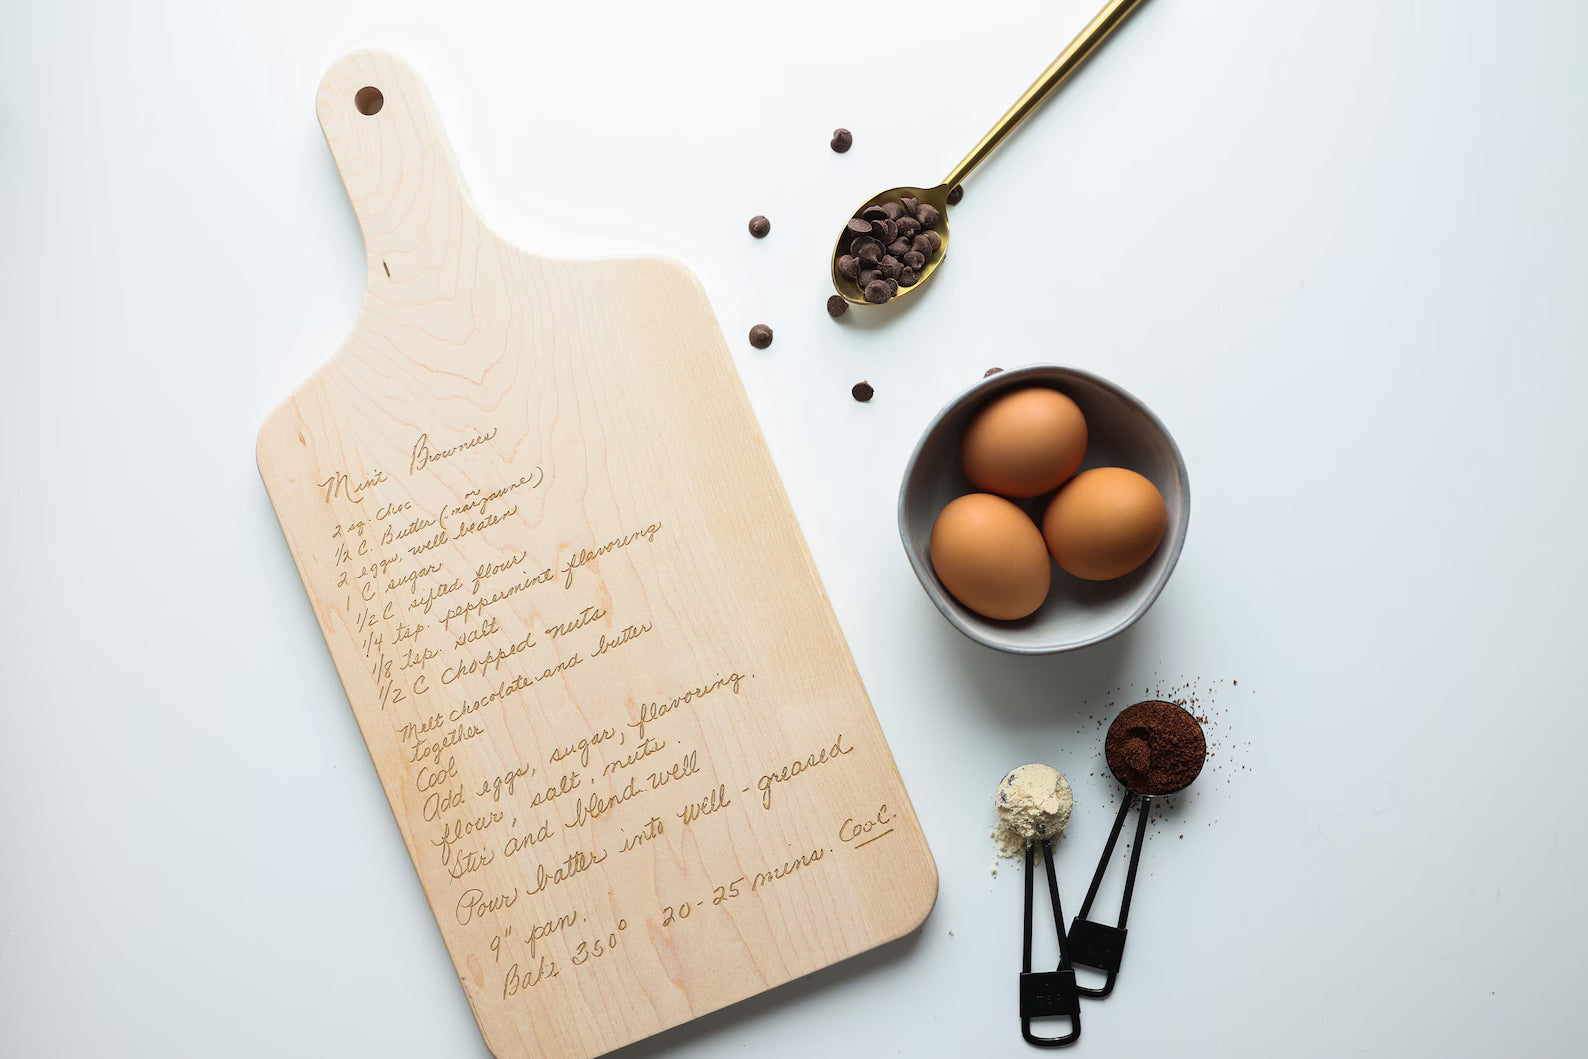 Mint Brownies
2 sq. choc
1/2 C. Butter (or margarine)
2 eggs, well beaten
1 C sugar
1/2 C sifted flour
1/4 tsp. peppermint flavoring
1/8 tsp. salt
1/2 C chopped nuts
Melt chocolate and butter
together
Cool
Add eggs, sugar, flavoring.
flour, salt, nuts.
Stir and blend well
Pour batter into well-greased
9" pan.
Bake 350° 20-25 mins. Cool.